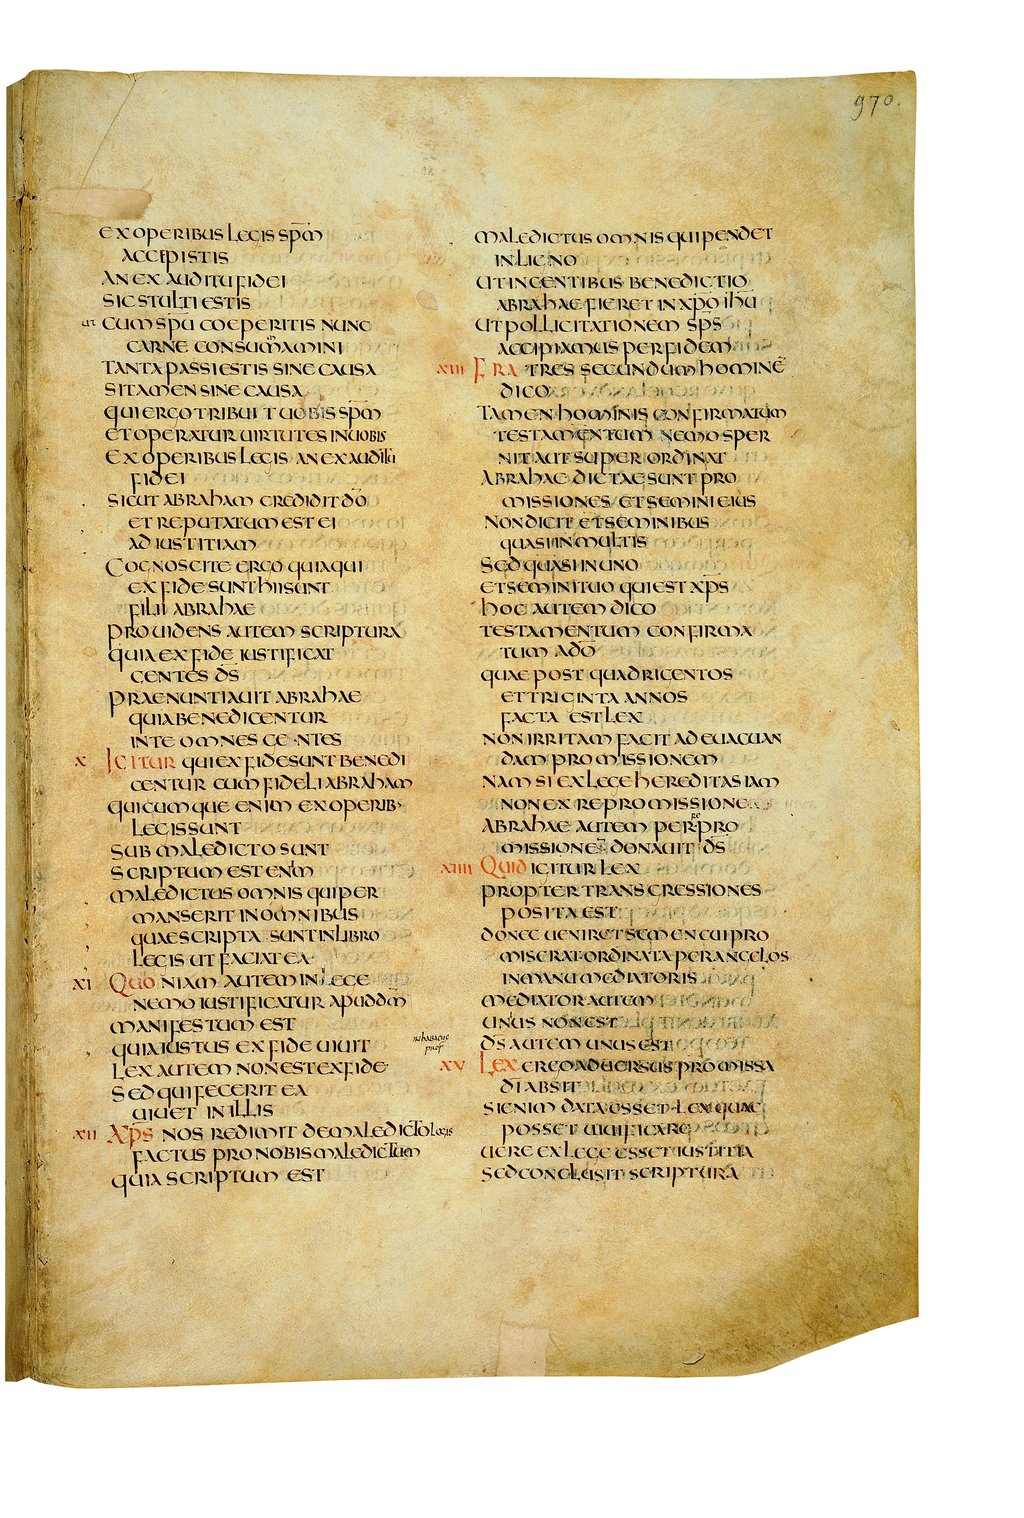 970.
EX OPERIBUS LEGIS SPM̄
ACCEPISTIS
AN EX AUDITU FIDEI
SIC STULTI ESTIS
ut CUM SPŪ COEPERITIS NUNC
CARNE CONSUMMAMINI
TANTA PASSI ESTIS SINE CAUSA
SI TAMEN SINE CAUSA
QUI ERGO TRIBUIT UOBIS SPM̄
ET OPERATUR UIRTUTES IN UOBIS
EX OPERIBUS LEGIS AN EX AUDITU
FIDEI
SICUT ABRAHAM CREDIDIT DŌ
ET REPUTATUM EST EI
AD IUSTITIAM
COGNOSCITE ERGO QUIA QUI
EX FIDE SUNT HII SUNT
FILII ABRAHAE
PROUIDENS AUTEM SCRIPTURA
QUIA EX FIDE IUSTIFICAT
GENTES D̄S
PRAENUNTIAUIT ABRAHAE
QUIA BENEDICENTUR
IN TE OMNES GENTES
X IGITUR QUI EX FIDE SUNT BENEDI
CENTUR CUM FIDELI ABRAHAM
QUICUMQUE ENIM EX OPERIB·
LEGIS SUNT
SUB MALEDICTO SUNT
SCRIPTUM EST ENIM
MALEDICTUS OMNIS QUI PER
MANSERIT IN OMNIBUS
QUAE SCRIPTA SUNT IN LIBRO
LEGIS UT FACIAT EA
XI QUONIAM AUTEM IN LEGE
NEMO IUSTIFICATUR APUD DM̄
MANIFESTUM EST
QUIA IUSTUS EX FIDE UIUIT
LEX AUTEM NON EST EX FIDE
SED QUI FECERIT EA
UIUET IN ILLIS
XII XP̄S NOS REDIMIT DE MALEDICTO LEGIS
FACTUS PRO NOBIS MALEDICTUM
QUIA SCRIPTUM EST
in habacuc
prof
MALEDICTUS OMNIS QUI PENDET
IN LIGNO
UT IN GENTIBUS BENEDICTIO
ABRAHAE FIERET IN XP̄O IHŪ
UT POLLICITATIONEM SP̄S
ACCIPIAMUS PER FIDEM
XIII FRATRES SECUNDUM HOMINĒ
DICO
TAMEN HOMINIS CONFIRMATUM
TESTAMENTUM NEMO SPER
NIT AUT SUPERORDINAT
ABRAHAE DICTAE SUNT PRO
MISSIONES ET SEMINI EIUS
NON DICIT ET SEMINIBUS
QUASI IN MULTIS
SED QUASI IN UNO
ET SEMINI TUO QUI EST XP̄S
HOC AUTEM DICO
TESTAMENTUM CONFIRMA
TUM A DŌ
QUAE POST QUADRIGENTOS
ET TRIGINTA ANNOS
FACTA EST LEX
NON IRRITAM FACIT AD EUACUAN
DAM PROMISSIONEM
NAM SI EX LEGE HEREDITAS IAM
NON EX REPROMISSIONE
ABRAHAE AUTEM PER rePRO
MISSIONEM DONAUIT D̄S
XIIII QUID IGITUR LEX
PROPTER TRANSGRESSIONES
POSITA EST
DONEC UENIRET SEMEN CUI PRO
MISERAT ORDINATA PER ANGELOS
IN MANU MEDIATORIS
MEDIATOR AUTEM
UNUS NON EST
D̄S AUTEM UNUS EST
XV LEX ERGO ADUERSUS PROMISSA
DĪ ABSIT
SI ENIM DATA ESSET LEX QUAE
POSSET UIUIFICARE
UERE EX LEGE ESSET IUSTITIA
SED CONCLUSIT SCRIPTURA